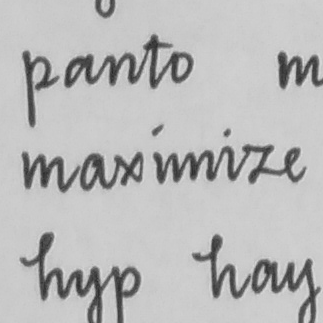 panto m
maximize
hyp hay